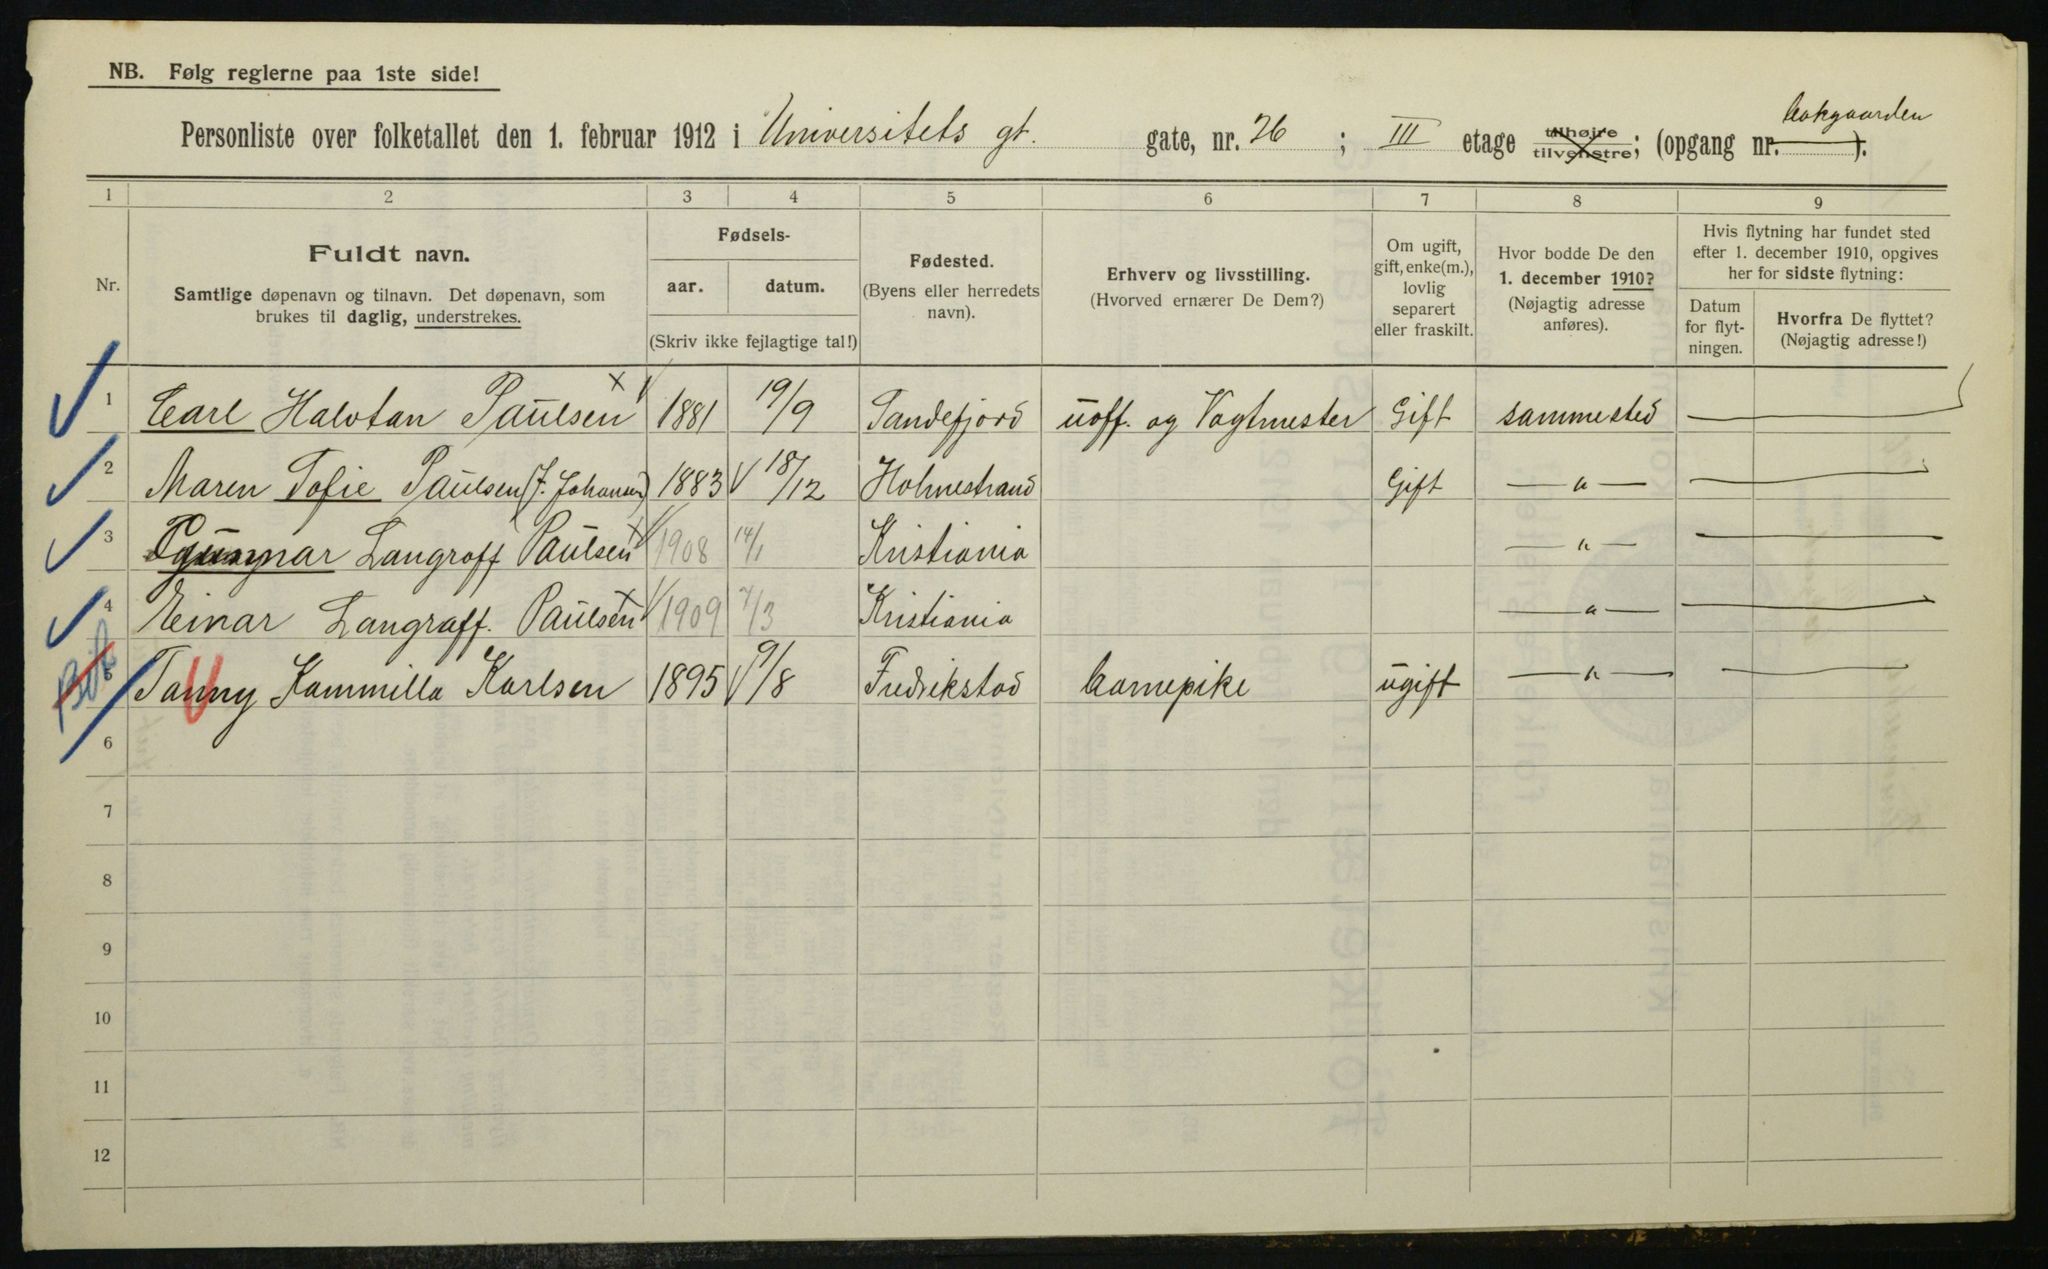 NB. Følg reglerne paa 1ste side!
Personliste over folketallet den 1. februar 1912 i Universitets gt. gate, nr. 26 ; III etage tilhøire tilvenstre; (opgang nr. Bakgaarden ).
1 2 3 4 5 6 7 8 9
Nr. Fuldt navn. Samtlige døpenavn og tilnavn. Det døpenavn, som brukes til daglig, understrekes. Fødsels- aar. datum. (Skriv ikke fejlagtige tal!) Fødested. (Byens eller herredets navn). Erhverv og livsstilling. (Hvorved ernærer De Dem?) Om ugift, gift, enke(m.), lovlig separert eller fraskilt. Hvor bodde De den 1. december 1910? (Nøjagtig adresse anføres). Hvis flytning har fundet sted efter 1. december 1910, opgives her for sidste flytning: Datum for flyt-ningen. Hvorfra De flyttet? (Nøjagtig adresse!)
1 Carl Halvtan Paulsen 1881 19/9 Sandefjord uoff. og Vagtmester Gift sammested
2 Maren Sofie Paulsen (f. Johansen) 1883 18/12 Holmestrand Gift — " —
3 Gunnar Langraff Paulsen 1908 14/1 Kristiania — " —
4 Einar Langraff. Paulsen 1909 7/3 Kristiania — " —
5 Fanny Kammilla Karlsen 1895 9/8 Fredrikstad Barnepike ugift — " —
6
7
8
9
10
11
12